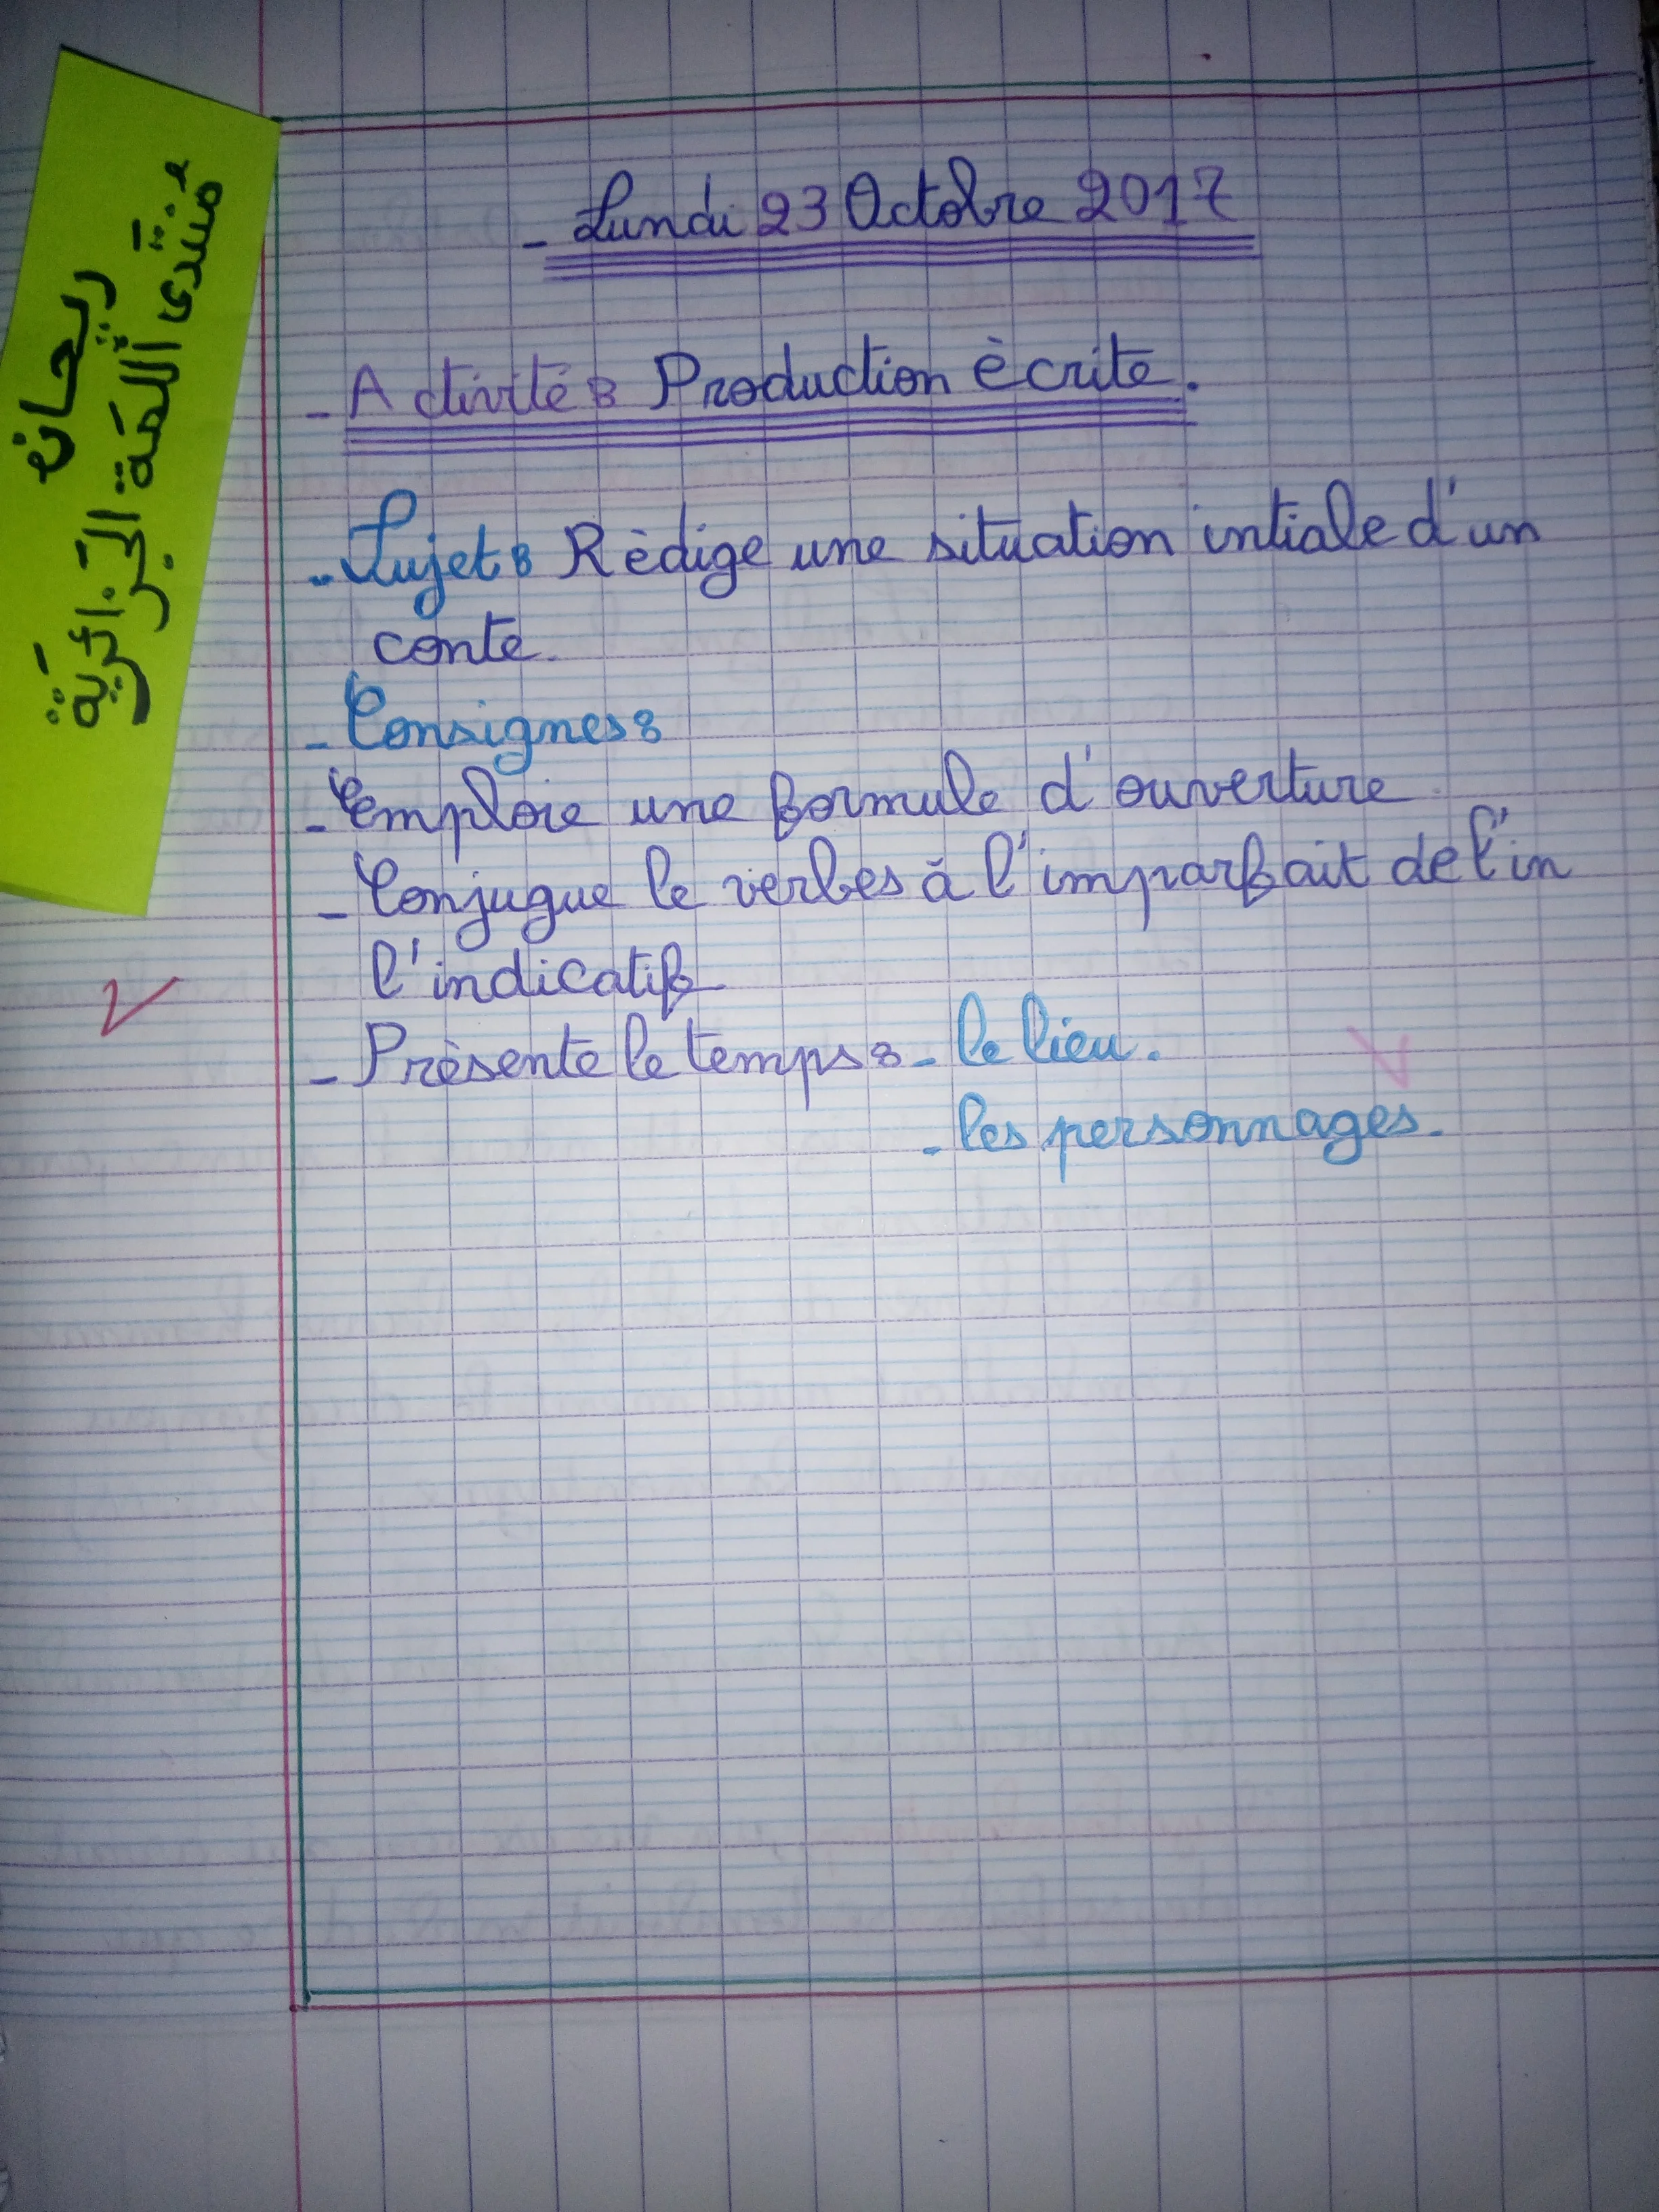 - Lundi 23 Octobre 2017
- Activité : Production ècrite.
- Sujet : Rèdige une situation intiale d'un
conte.
- Consignes :
- Emploie une formule d'ouverture
- Conjugue le verbes à l'imparfait de l'in
l'indicatif
- Prèsente le temps : - le lieu.
- les personnages.
ريحان
منتدى اللمّة الجزائريّة